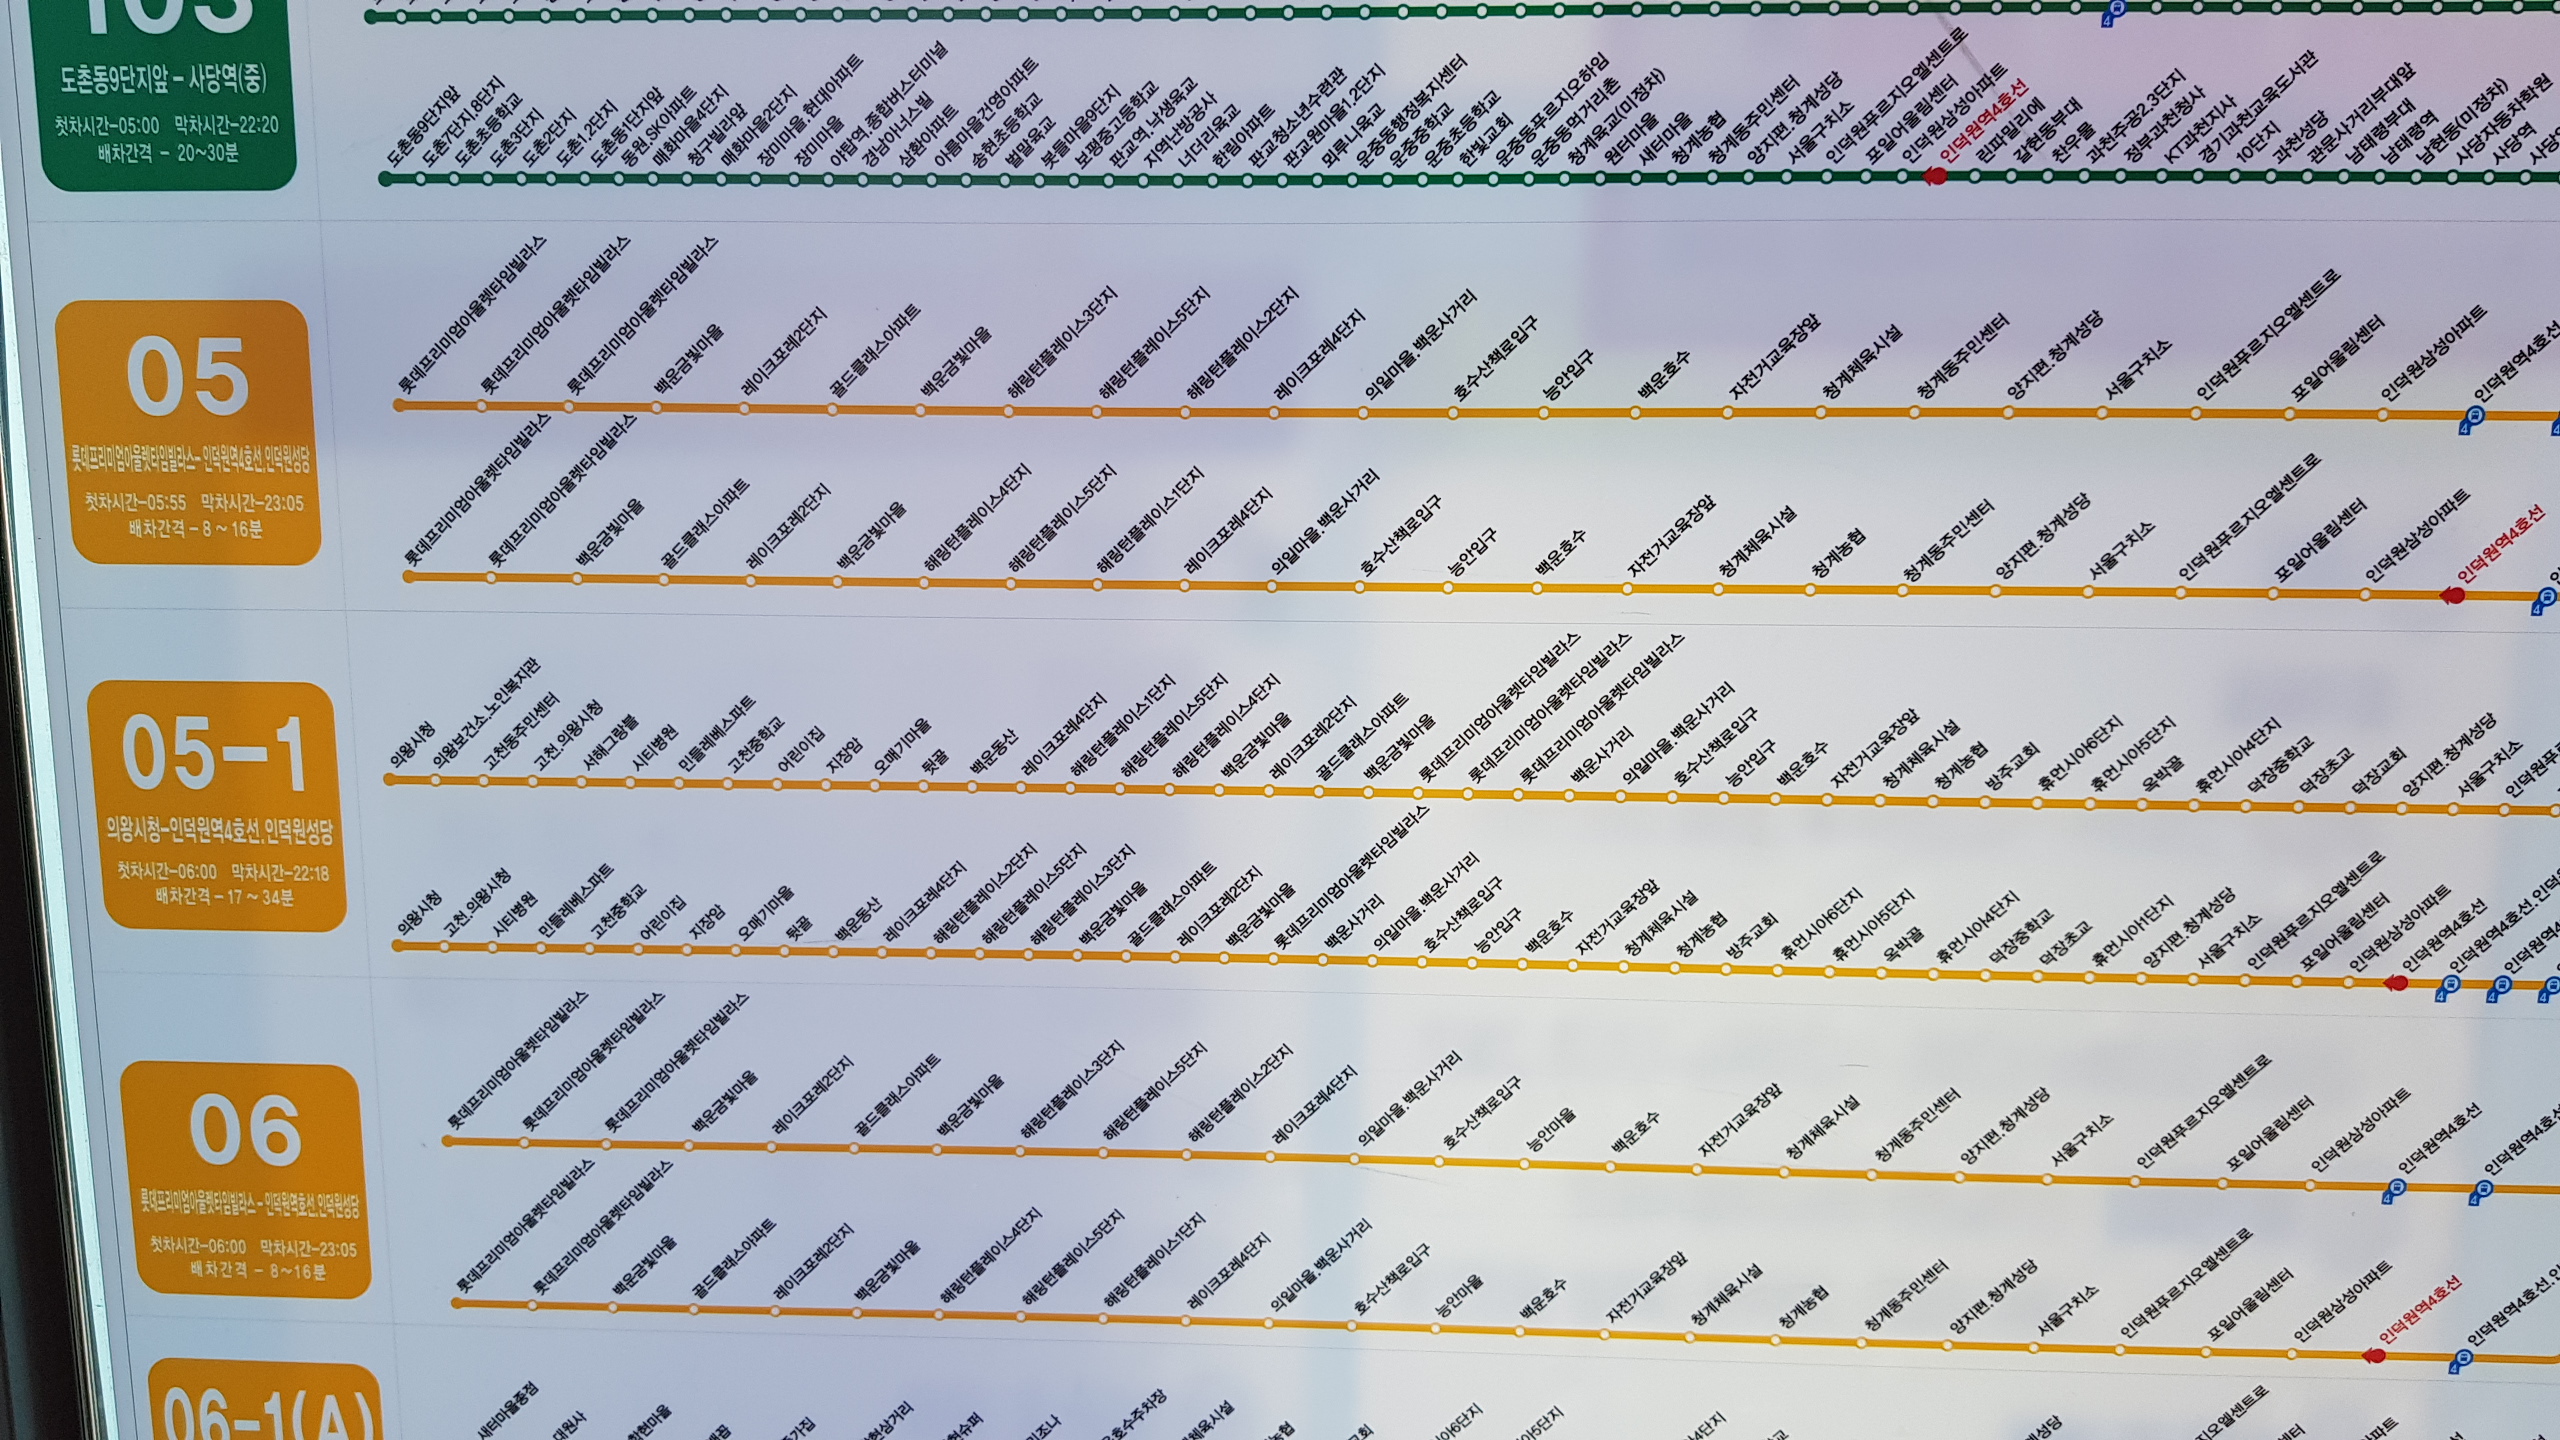 103
도촌동9단지앞 - 사당역(중)
첫차시간-05:00 막차시간-22:20
배차간격 - 20~30분
도촌동9단지앞
도촌7단지,8단지
도촌초등학교
도촌3단지
도촌2단지
도촌1,2단지
도촌동1단지앞
동원,SK아파트
매화마을4단지
청구빌라앞
매화마을2단지
장미마을.현대아파트
장미마을
야탑역,종합버스터미널
경남아너스빌
삼환아파트
아름마을건영아파트
송현초등학교
벌말육교
붓들마을9단지
보평중고등학교
판교역.낙생육교
지역난방공사
너더리육교
한림아파트
판교청소년수련관
판교원마을1,2단지
뫼루니육교
운중동행정복지센터
운중중학교
운중초등학교
한빛교회
운중동푸르지오하임
운중동먹거리촌
청계육교(미정차)
원터마을
새터마을
청계농협
청계동주민센터
양지편.청계성당
서울구치소
인덕원푸르지오엘센트로
포일어울림센터
인덕원삼성아파트
인덕원역4호선
린파밀리에
갈현동부대
찬우물
과천주공2.3단지
정부과천청사
KT과천지사
경기과천교육도서관
10단지
과천성당
관문사거리부대앞
남태령부대
남태령역
남현동(미정차)
사당자동차학원
사당역
05
롯데프리미엄아울렛타임빌라스- 인덕원역4호선,인덕원성당
첫차시간-05:55 막차시간-23:05
배차간격 - 8 ~ 16분
롯데프리미엄아울렛타임빌라스
롯데프리미엄아울렛타임빌라스
롯데프리미엄아울렛타임빌라스
백운금빛마을
레이크포레2단지
골드클래스아파트
백운금빛마을
해링턴플레이스3단지
해링턴플레이스5단지
해링턴플레이스2단지
레이크포레4단지
의일마을.백운사거리
호수산책로입구
능안입구
백운호수
자전거교육장앞
청계체육시설
청계동주민센터
양지편.청계성당
서울구치소
인덕원푸르지오엘센트로
포일어울림센터
인덕원삼성아파트
인덕원역4호선
롯데프리미엄아울렛타임빌라스
롯데프리미엄아울렛타임빌라스
백운금빛마을
골드클래스아파트
레이크포레2단지
백운금빛마을
해링턴플레이스4단지
해링턴플레이스5단지
해링턴플레이스1단지
레이크포레4단지
의일마을.백운사거리
호수산책로입구
능안입구
백운호수
자전거교육장앞
청계체육시설
청계농협
청계동주민센터
양지편.청계성당
서울구치소
인덕원푸르지오엘센트로
포일어울림센터
인덕원삼성아파트
인덕원역4호선
05-1
의왕시청-인덕원역4호선,인덕원성당
첫차시간-06:00 막차시간-22:18
배차간격 - 17 ~ 34분
의왕시청
의왕보건소.노인복지관
고천동주민센터
고천.의왕시청
서해그랑블
시티병원
민들레베스파트
고천중학교
어린이집
지장암
오매기마을
뒷골
백운동산
레이크포레4단지
해링턴플레이스1단지
해링턴플레이스5단지
해링턴플레이스4단지
백운금빛마을
레이크포레2단지
골드클래스아파트
백운금빛마을
롯데프리미엄아울렛타임빌라스
롯데프리미엄아울렛타임빌라스
롯데프리미엄아울렛타임빌라스
백운사거리
의일마을.백운사거리
호수산책로입구
능안입구
백운호수
자전거교육장앞
청계체육시설
청계농협
방주교회
휴먼시아6단지
휴먼시아5단지
옥박골
휴먼시아4단지
덕장중학교
덕장초교
덕장교회
양지편.청계성당
서울구치소
의왕시청
고천.의왕시청
시티병원
민들레베스파트
고천중학교
어린이집
지장암
오매기마을
뒷골
백운동산
레이크포레4단지
해링턴플레이스2단지
해링턴플레이스5단지
해링턴플레이스3단지
백운금빛마을
골드클래스아파트
레이크포레2단지
백운금빛마을
롯데프리미엄아울렛타임빌라스
백운사거리
의일마을.백운사거리
호수산책로입구
능안입구
백운호수
자전거교육장앞
청계체육시설
청계농협
방주교회
휴먼시아6단지
휴먼시아5단지
옥박골
휴먼시아4단지
덕장중학교
덕장초교
휴먼시아1단지
양지편.청계성당
서울구치소
인덕원푸르지오엘센트로
포일어울림센터
인덕원삼성아파트
인덕원역4호선
06
롯데프리미엄아울렛타임빌라스 - 인덕원역호선,인덕원성당
첫차시간-06:00 막차시간-23:05
배차간격 - 8~16분
롯데프리미엄아울렛타임빌라스
롯데프리미엄아울렛타임빌라스
롯데프리미엄아울렛타임빌라스
백운금빛마을
레이크포레2단지
골드클래스아파트
백운금빛마을
해링턴플레이스3단지
해링턴플레이스5단지
해링턴플레이스2단지
레이크포레4단지
의일마을.백운사거리
호수산책로입구
능안마을
백운호수
자전거교육장앞
청계체육시설
청계동주민센터
양지편.청계성당
서울구치소
인덕원푸르지오엘센트로
포일어울림센터
인덕원삼성아파트
인덕원역4호선
인덕원역4호선
롯데프리미엄아울렛타임빌라스
롯데프리미엄아울렛타임빌라스
백운금빛마을
골드클래스아파트
레이크포레2단지
백운금빛마을
해링턴플레이스4단지
해링턴플레이스5단지
해링턴플레이스1단지
레이크포레4단지
의일마을.백운사거리
호수산책로입구
능안마을
백운호수
자전거교육장앞
청계체육시설
청계농협
청계동주민센터
양지편.청계성당
서울구치소
인덕원푸르지오엘센트로
포일어울림센터
인덕원삼성아파트
인덕원역4호선
06-1(A)
새터마을종점